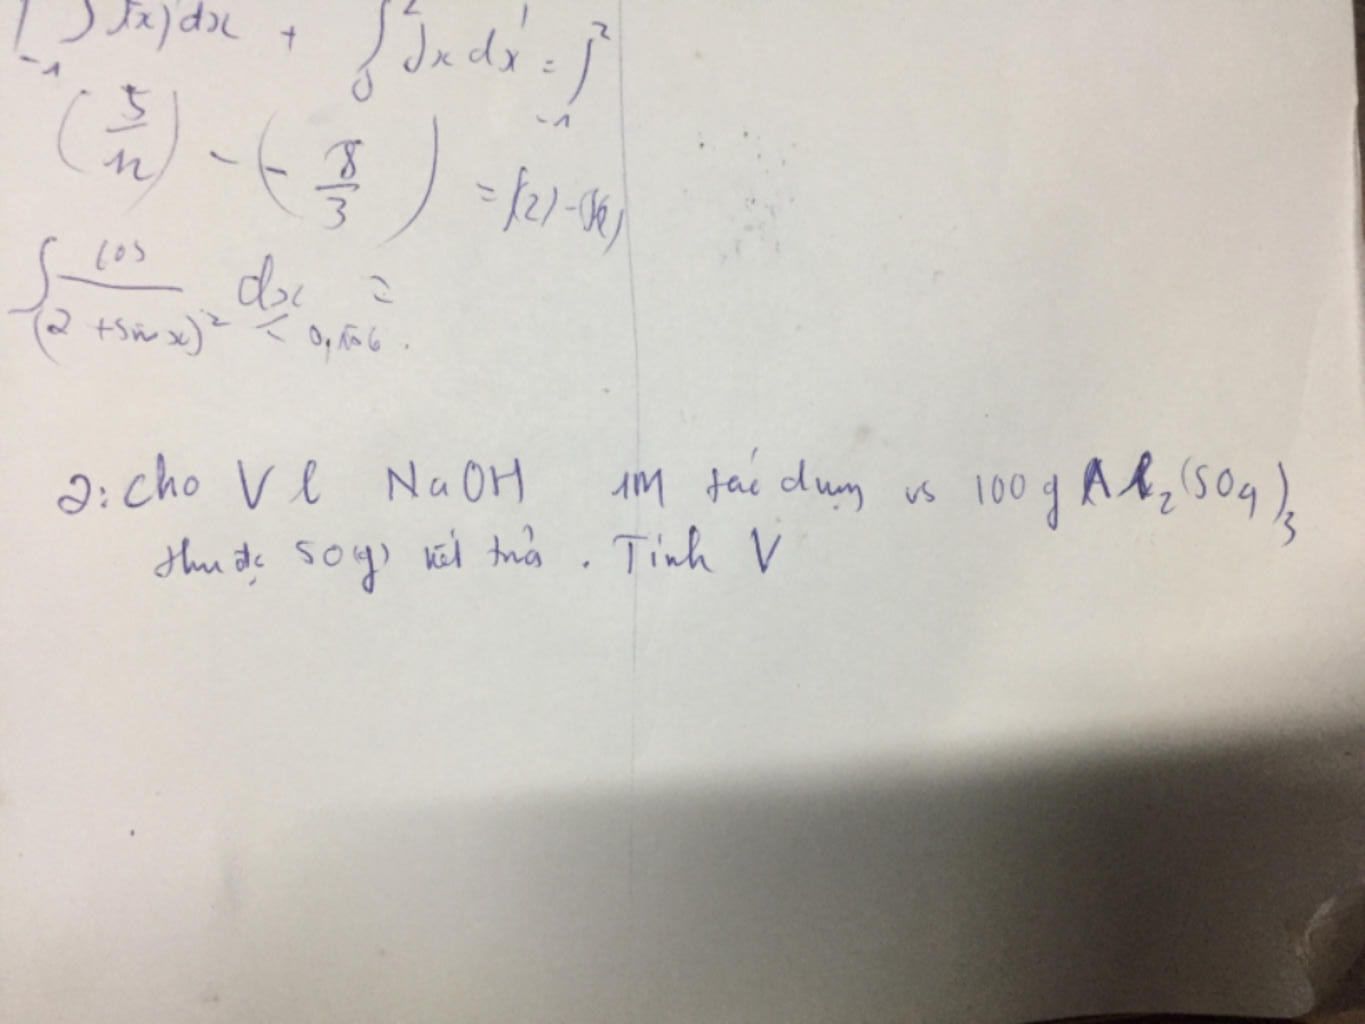 ∫ f(x)dx + ∫ dx = ∫
-1 0 2 -1 2
(5/n) - (- 8/3) = f(2) -
∫ cos / (2 + sin x)² dx =
2: Cho V l NaOH 1M tác dụng vs 100g Al₂(SO₄)₃
thu đc 50(g) kết tủa . Tính V